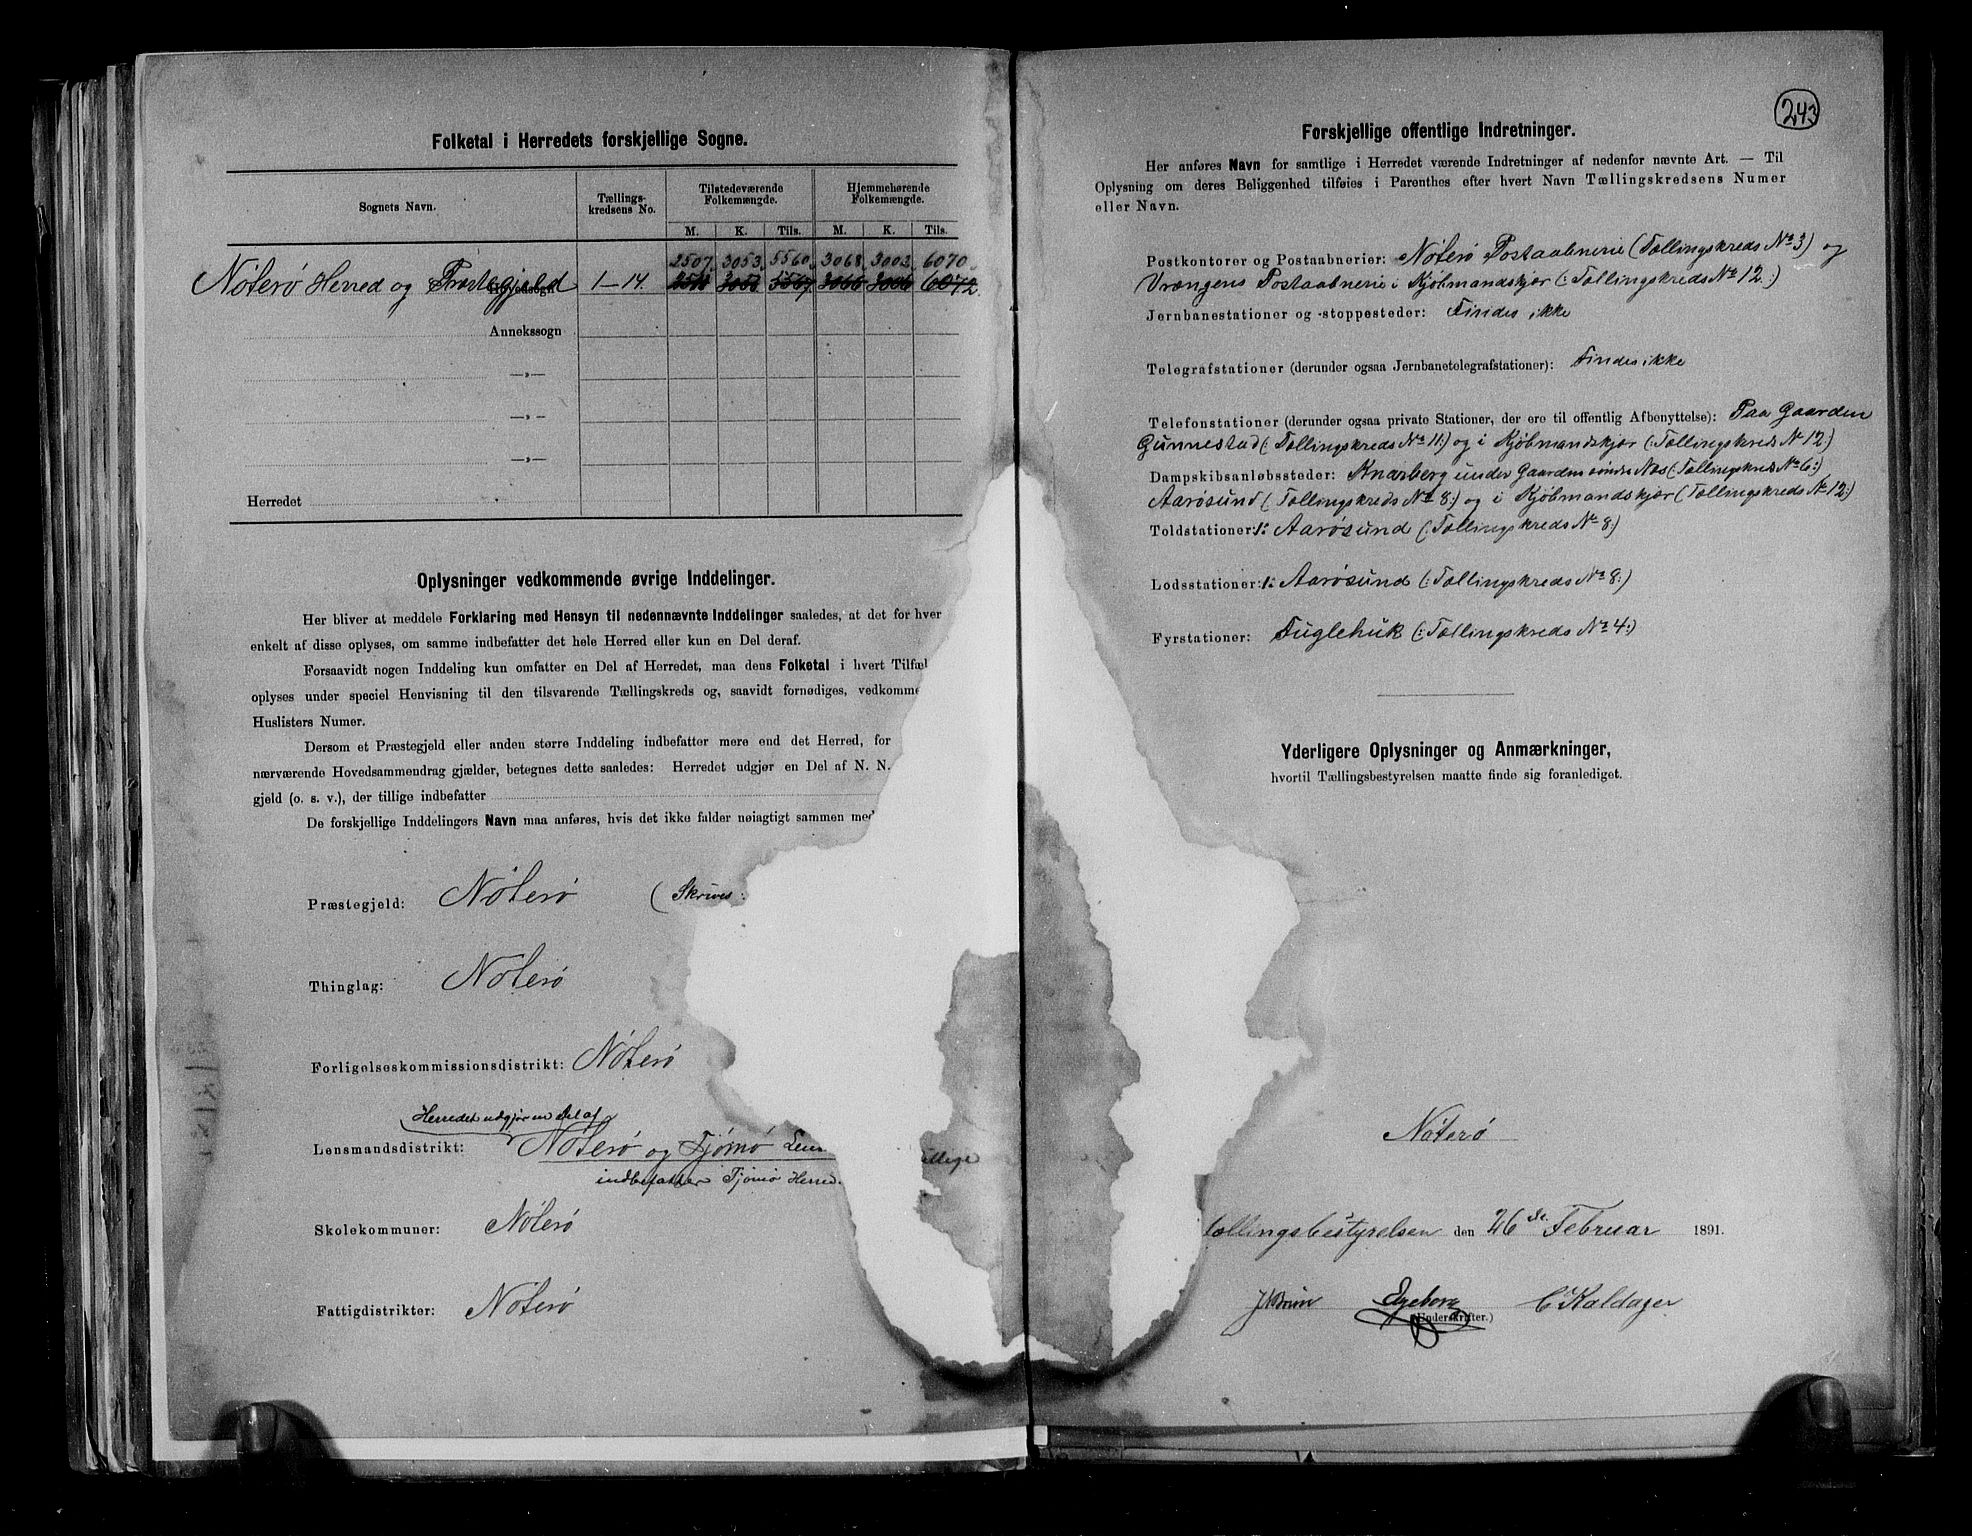 Folketal i Herredets forskjellige Sogne.
Sognets Navn.
Tællings-
kredsens No.
Tilstedeværende
Folkemængde.
Hjemmehørende
Folkemængde.
M. K. Tils. M. K. Tils.
2507 3053 5560 3068 3002 6070
Nøterø Herred og Præstegjeld 1-14. 3053 5567 3066 3006 6072.
Hovedsogn
Annekssogn
—„—
—„—
—„—
Herredet
Oplysninger vedkommende øvrige Inddelinger.
Her bliver at meddele Forklaring med Hensyn til nedennævnte Inddelinger saaledes, at det for hver
enkelt af disse oplyses, om samme indbefatter det hele Herred eller kun en Del deraf.
Forsaavidt nogen Inddeling kun omfatter en Del af Herredet, maa dens Folketal i hvert Tilfæl
oplyses under speciel Henvisning til den tilsvarende Tællingskreds og, saavidt fornødiges, vedkomme
Huslisters Numer.
Dersom et Præstegjeld eller anden større Inddeling indbefatter mere end det Herred, for
nærværende Hovedsammendrag gjælder, betegnes dette saaledes: Herredet udgjør en Del af N. N.
gjeld (o. s. v.), der tillige indbefatter
De forskjellige Inddelingers Navn maa anføres, hvis det ikke falder nøiagtigt sammen med
Præstegjeld: Nøterø (Skrives:
Thinglag: Nøterø
Forligelseskommissionsdistrikt: Nøterø
Herredet udgjør en Del af
Lensmandsdistrikt: Nøterø og Tjømø Lens tillige
indbefatter Tjømø Herred.
Skolekommuner: Nøterø
Fattigdistrikter: Nøterø
243
Forskjellige offentlige Indretninger.
Her anføres Navn for samtlige i Herredet værende Indretninger af nedenfor nævnte Art. — Til
Oplysning om deres Beliggenhed tilføies i Parenthes efter hvert Navn Tællingskredsens Numer
eller Navn.
Postkontorer og Postaabnerier: Nøterø Postaabnerie (Tællingskreds No 3) og
Vrængens Postaabnerie i Kjøbmandskjær (:Tællingskreds No 12:)
Jernbanestationer og -stoppesteder: Findes ikke
Telegrafstationer (derunder ogsaa Jernbanetelegrafstationer): Findes ikke
Telefonstationer (derunder ogsaa private Stationer, der ere til offentlig Afbenyttelse): Paa Gaarden
Gunnestad (:Tællingskreds No 11:) og i Kjøbmandskjær (:Tællingskreds No 12:)
Dampskibsanløbssteder: Knarberg under Gaarden søndre Næs (:Tællingskreds No 6:)
Aarøsund (:Tællingskreds No 8:) og i Kjøbmandskjær (:Tællingskreds No 12:)
Toldstationer: Aarøsund (:Tællingskreds No 8:)
Lodsstationer: Aarøsund (:Tællingskreds No 8:)
Fyrstationer: Fuglehuk (:Tællingskreds No 4:)
Yderligere Oplysninger og Anmærkninger,
hvortil Tællingsbestyrelsen maatte finde sig foranlediget.
Nøterø
tællingsbestyrelsen den 26de Februar 1891.
Bruun Engeborg C Kaldager
(Underskrifter.)